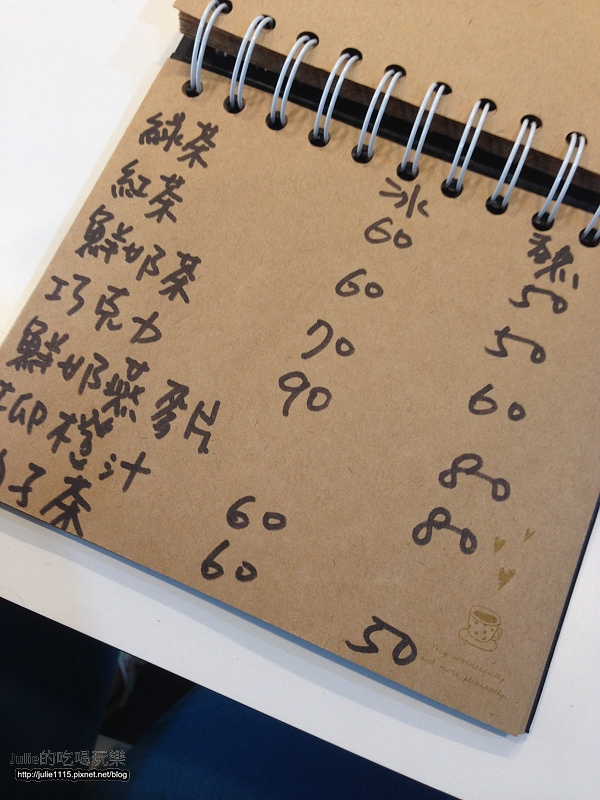 冰 熱
綠茶 60 50
紅茶 60 50
鮮奶茶 70 60
巧克力 90 80
鮮奶燕麥片 80
柳橙汁 60
子茶 60 50
Julie的吃喝玩樂
http://julie1115.pixnet.net/blog